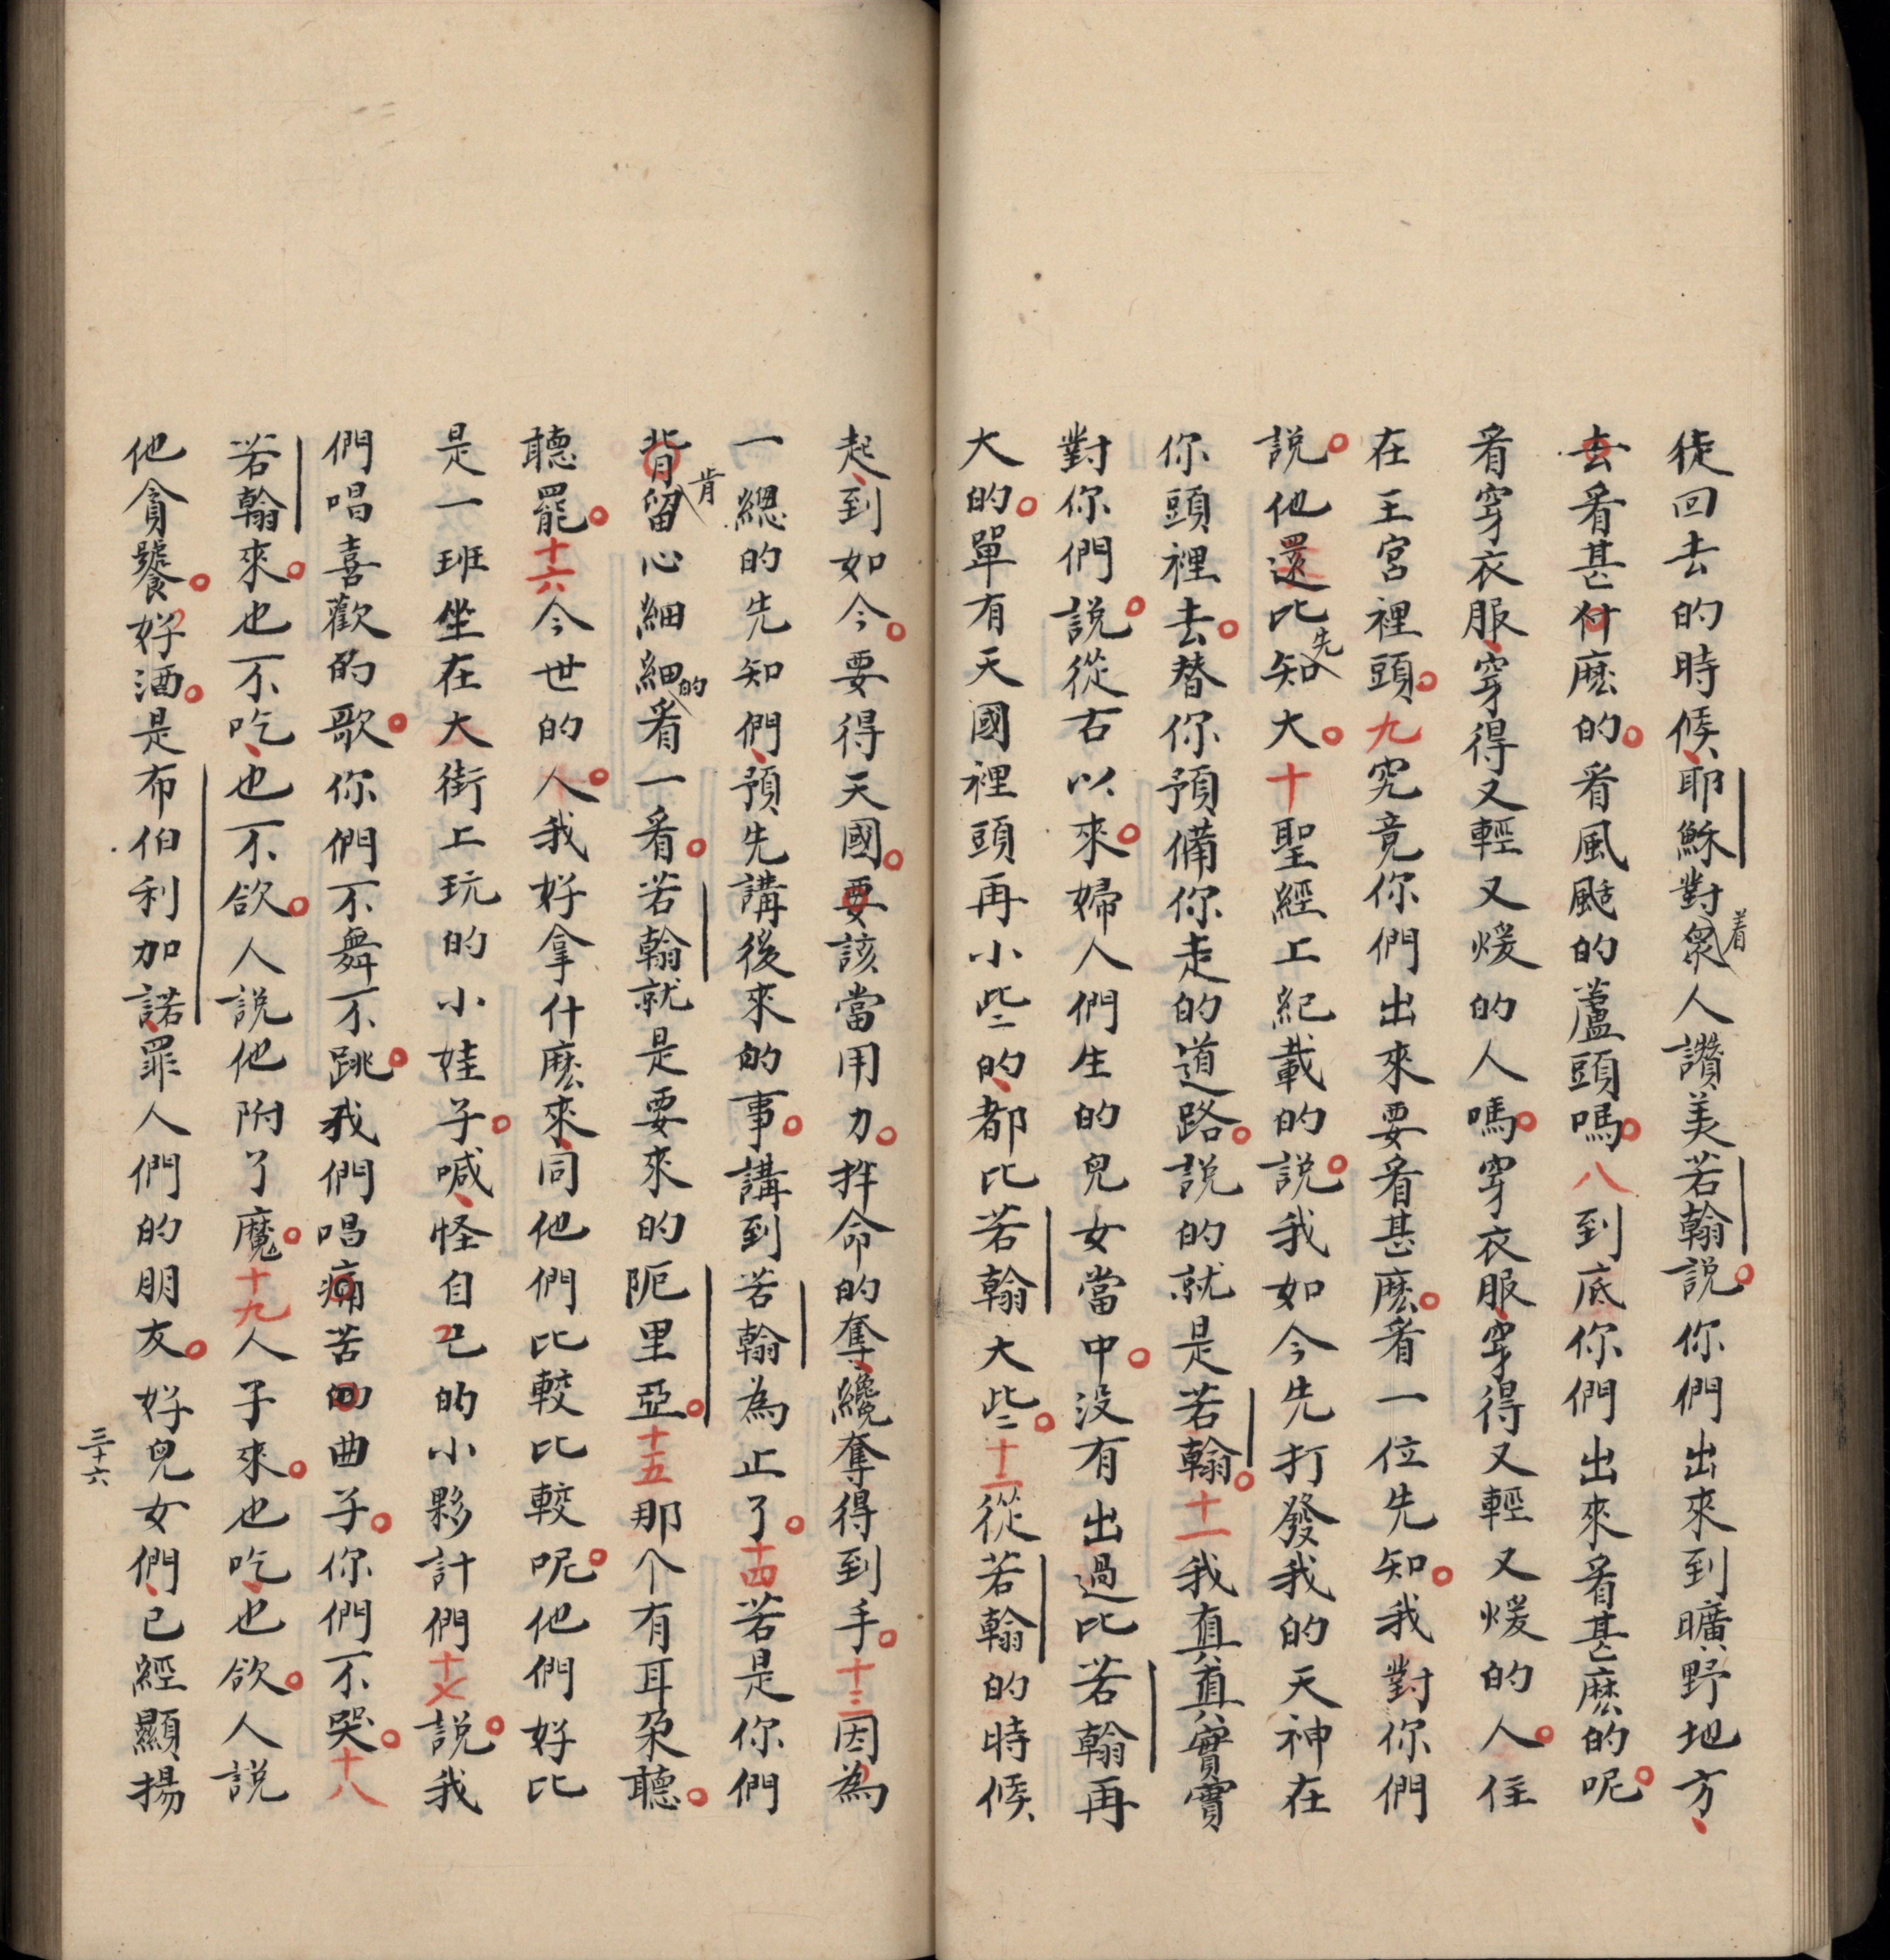 徒回去的時候、耶穌對着衆人讚美若翰説。你們出來到曠野地方、
去看甚什麽的。看風颭的蘆頭嗎。八到底你們出來看甚麽的呢。
看穿衣服、穿得又輕又煖的人嗎。穿衣服、穿得又輕又煖的人。住
在王宮裡頭。九究竟你們出來要看甚麽。看一位先知。我對你們
説。他還比先知大。十聖經上紀載的説。我如今先打發我的天神在
你頭裡去。替你預備你走的道路。説的就是若翰。十一我真真實實
對你們説。從古以來。婦人們生的兒女當中。没有出過比若翰再
大的。單有天國裡頭再小些的、都比若翰大些。十二從若翰的時候、
起、到如今。要得天國。要該當用力。拌命的奪、纔奪得到手。十三因為
一總的先知們、預先講後來的事。講到若翰為止了。十四若是你們
背肯留心細細的看一看。若翰就是要來的阨里亞。十五那个有耳朶聽。
聽罷。十六今世的人。我好拿什麽來、同他們比較比較呢。他們好比
是一班坐在大街上玩的小娃子。喊、怪自己的小夥計們十七説。我
們唱喜歡的歌。你們不舞不跳。我們唱痛苦的曲子。你們不哭。十八
若翰來。也不吃、也不飲。人説他附了魔。十九人子來。也吃、也飲。人説
他貪饕。好酒。是布伯利加諾、罪人們的朋友。好兒女們、已經顯揚
三十六